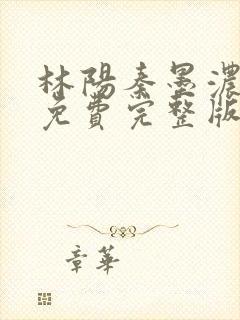 林陽秦墨濃
免費完整版
章華